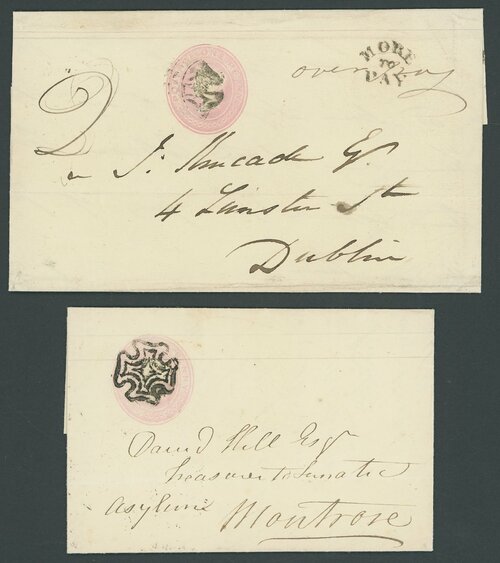 MORE
TO
PAY
2
J. Kincade Esqr.
4 Leinster St
Dublin
David Hill Esqr
Treasurer to Lunatic
Asylum Montrose